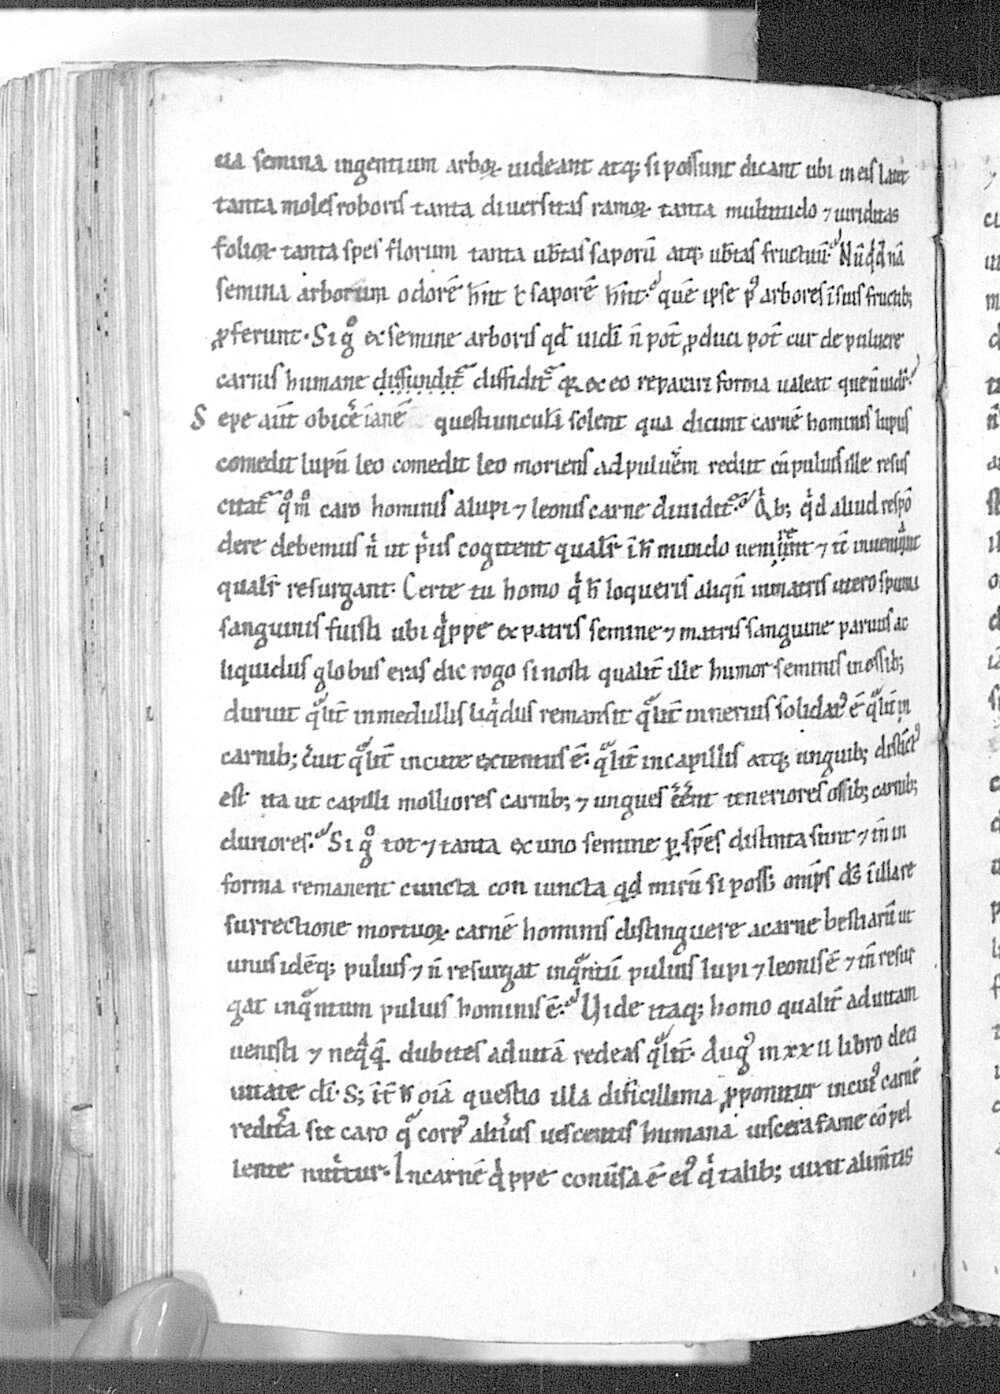 ua semina ingentium arboꝝ uideant atq; si possunt dicant ubi in eis latet
tanta moles roboris tanta diuersitas ramoꝝ tanta multitudo ⁊ uiriditas
folioꝝ tanta spes florum tanta ub̅tas saporū atq; ub̅tas fructuū. Nūqͥd nā
semina arborum odorē hn̅t ł saporē hn̅t. quē ipse pꝰ arbores ī suis fructib;
ꝓferunt. Si gͦ ex semine arboris qd̅ uidi n̅ pot̅ ꝓduci pot̅ cur de puluere
carnis humane diffundit᷑ diffidit᷑ qꝝ ex eo reparari forma ualeat que n̅ uidet᷑.
Sepe aūt obicē ianē questiunculā solent qua dicunt carnē hominis lupus
comedit lupū leo comedit leo moriens ad puluerē redit cū puluis ille resus
citat᷑ qͦmͦ caro hominis a lupi ⁊ leonis carne diuidit᷑. Qͥb; qͥd aliud respō
dere debemus nͥ ut pͥus cogitent qualr̅ ī h̅ mundo uenerint ⁊ tc̅ inuenient
qualr̅ resurgant. Certe tu homo qͥ h̅ loqueris aliqn̅ in matris utero spuma
sanguinis fuisti ubi qͥppe ex patris semine ⁊ matris sanguine paruus ac
liquidus globus eras dic rogo si nosti qualit̅ ille humor seminis in ossib;
duruit qͣlit̅ in medullis liqͥdus remansit qͣlit̅ in neruis solidatꝰ ē qͣlit̅ in
carnib; cͥuit qͣlit̅ in cute extentus ē. qͣlit̅ in capillis atq; unguib; distīctꝰ
est. ita ut capilli molliores carnib; ⁊ ungues eēnt teneriores ossib; carnib;
duriores. Si gͦ tot ⁊ tanta ex uno semine ꝑ spēs distinta sunt ⁊ tn̅ in
forma remanent cuncta con iuncta qd̅ mirū si poss; omps̅ ds̅ ī illa re
surrectione mortuoꝝ carnē hominis distinguere a carne bestiarū ut
unus idēq; puluis ⁊ n̅ resurgat inqͣntū puluis lupi ⁊ leonis ē ⁊ tn̅ resur
gat inqͣntum puluis hominis ē. Uide itaq; homo qualit̅ ad uitam
uenisti ⁊ neqͣqͣ dubites ad uitā redeas qͣlit̅. Augꝰ in xxii libro de ci
uitate di̅. S; it̅ h̅ oīa questio illa dificillima ꝓponitur in cuiꝰ carnē
reditͣa sit caro qͣ corpꝰ altͥius uescentis humana uiscera fame cōpel
lente nutͥtur. In carnē qͥppe conūsa ē eiꝰ qͥ talib; uixit alimtis